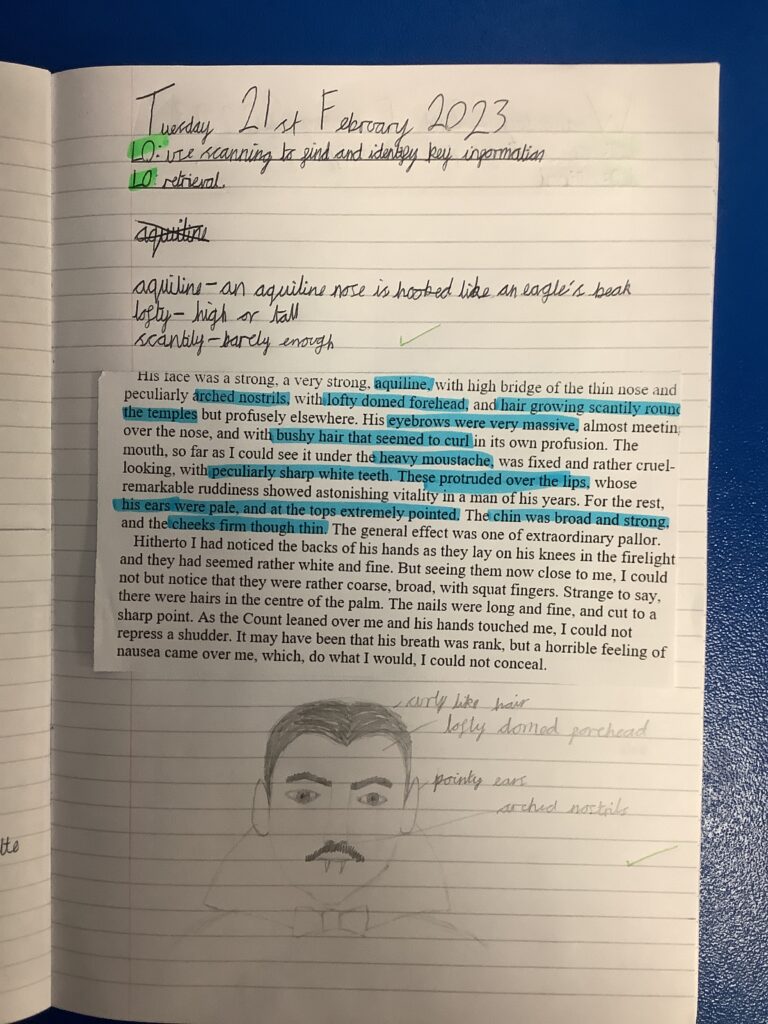 Tuesday 21st February 2023
LO: use scanning to find and identify key information
LO: retrieval.
aquiline
aquiline - an aquiline nose is hooked like an eagle's beak
lofty - high or tall
scantily - barely enough
His face was a strong, a very strong, aquiline, with high bridge of the thin nose and
peculiarly arched nostrils, with lofty domed forehead, and hair growing scantily round
the temples but profusely elsewhere. His eyebrows were very massive, almost meetin
over the nose, and with bushy hair that seemed to curl in its own profusion. The
mouth, so far as I could see it under the heavy moustache, was fixed and rather cruel-
looking, with peculiarly sharp white teeth. These protruded over the lips, whose
remarkable ruddiness showed astonishing vitality in a man of his years. For the rest,
his ears were pale, and at the tops extremely pointed. The chin was broad and strong,
and the cheeks firm though thin. The general effect was one of extraordinary pallor.
Hitherto I had noticed the backs of his hands as they lay on his knees in the firelight
and they had seemed rather white and fine. But seeing them now close to me, I could
not but notice that they were rather coarse, broad, with squat fingers. Strange to say,
there were hairs in the centre of the palm. The nails were long and fine, and cut to a
sharp point. As the Count leaned over me and his hands touched me, I could not
repress a shudder. It may have been that his breath was rank, but a horrible feeling of
nausea came over me, which, do what I would, I could not conceal.
curly like hair
lofty domed forehead
pointy ears
arched nostrils